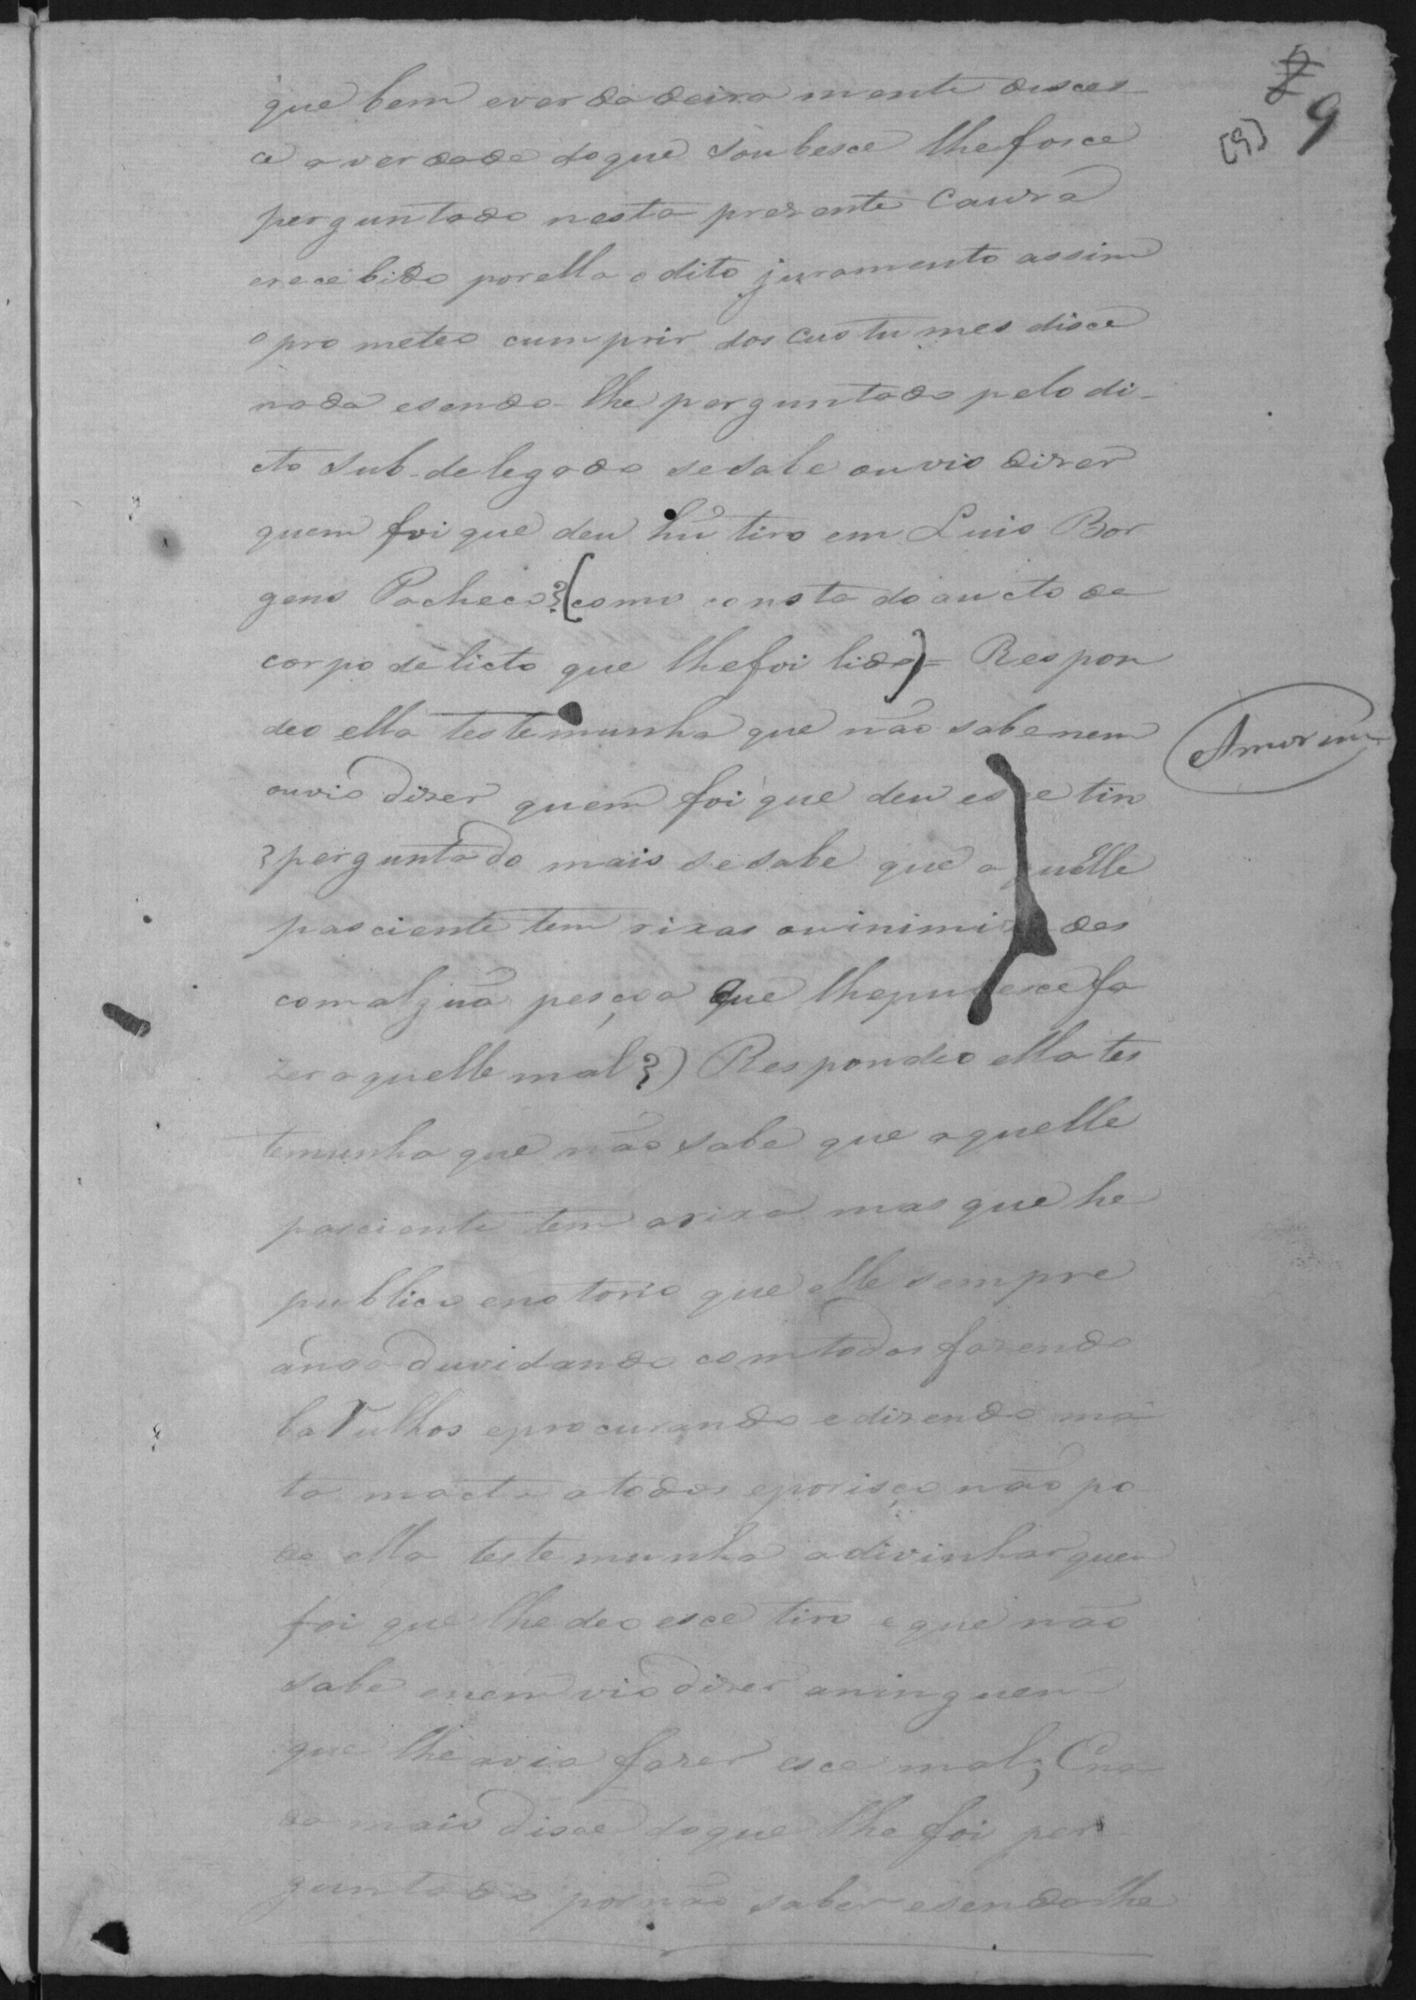 9
[9]
que bem everdadeira mente disces
ce a verdade doque soubesce lhefosce
perguntado nesta prezente Cauza
erecebido porella odito juramento assim
oprometeo cumprir dos custumes disce
nada esendo-lhe perguntado pelo di-
cto Sub-delegado sesabe ouvio dizer
quem foi que deu hũ tiro em Luis Bor
gens Pacheco?(como consta do aucto de
corpo de licto que lhefoi lido)= Respon
deo ella testemunha que não sabenem
Amorim
ouvio dizer quem foi que deu esce tiro
?perguntado mais sesabe que aquelle
pasciente tem rixas ouinimizades
comalguã pesçoa que lhepudesce fa
zer aquelle mal?) Respondeo ella tes
temunha que não sabe que aquelle
pasciente tem arixa mas que he
publico enotorio que elle sempre
anda duvidando comtodos fazendo
barulhos eprocurando edizendo ma
ta macta atodos eporisço não po
de ella testemunha adivinhar quem
foi que lhe deo esce tiro eque não
sabe enem vio dizer aninguem
que lhe avia fazer esce mal; Ena
da mais disce doque lhe foi per
guntado pornão saber esendolhe